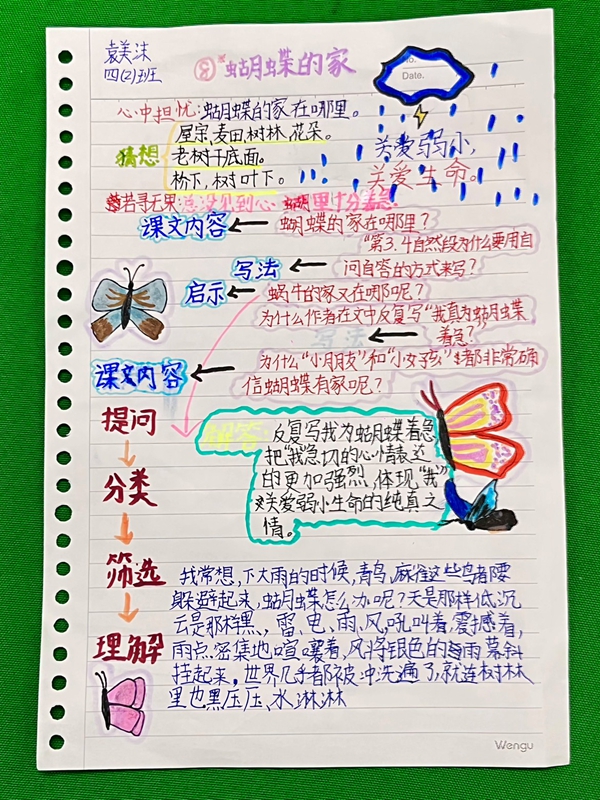 袁美沫
四(2)班
⑧*蝴蝶的家
No.
Date.
心中担忧:蝴蝶的家在哪里。
猜想
屋宗、麦田、树林、花朵。
老树干底面。
桥下,树叶下。
关爱弱小,
关爱生命。
苦寻无果:总没见到心 里十分着急
课文内容 ← 蝴蝶的家在哪里?
"第3.4自然段为什么要用自
写法 ← 问自答的方式来写?
启示 ← 蜗牛的家又在哪呢?
为什么作者在文中反复写"我真为蝴蝶
着急?"
写法 ←
课文内容 ← 为什么"小朋友"和"小女孩"都非常确
信蝴蝶有家呢?
提问
↓
分类
↓
筛选
↓
理解
解答:
反复写我为蝴蝶着急
把"我"急切的心情表达
的更加强烈,体现"我"
关爱弱小生命的纯真之
情。
我常想,下大雨的时候,青鸟,麻雀这些鸟都要
躲避起来,蝴蝶怎么办呢?天是那样低沉
云是那样黑、,雷、电、雨、风,吼叫着,震撼着,
雨点密集地喧嚷着,风将银色的雨幕斜
挂起来,世界几乎都被冲洗遍了,就连树林
里也黑压压、水淋淋
Wengu